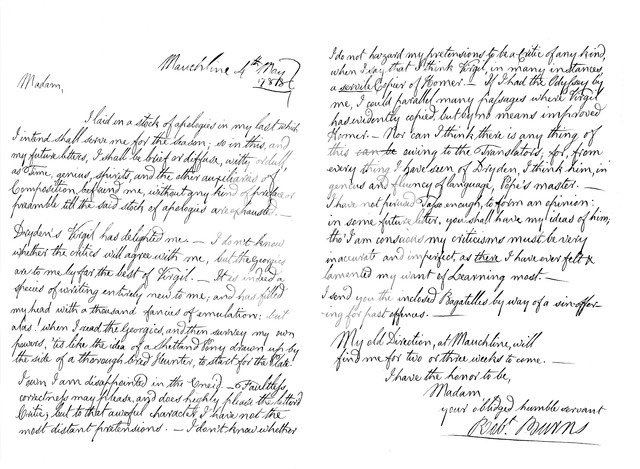 Mauchline 4th May
1788
Madam,
I laid in a stock of apologies in my last which
I intend shall serve me for the season; so in this, and
my future letters, I shall be brief or diffuse, witty or dull,
as Time, genius, spirits, and the other auxiliaries of
Composition, befriend me, without any kind of preface or
preamble till the said stock of apologies are exhausted. —
Dryden's Virgil has delighted me. — I don't know
whether the critics will agree with me, but the Georgics
are to me by far the best of Virgil. — It is indeed a
species of writing entirely new to me; and has filled
my head with a thousand fancies of emulation: but
alas! when I read the Georgics, and then survey my own
powers, 'tis like the idea of a Shetland Pony drawn up by
the side of a thorough bred Hunter, to start for the Plate.
I own I am disappointed in the Eneid. — Faultless,
correctness may please, and does highly please the lettered
Critic; but to that aweful character I have not the
most distant pretensions. — I don't know whether
I do not hazard my pretensions to be a Critic of any kind,
when I say that I think Virgil, in many instances,
a servile Copier of Homer. — If I had the Odyssey by
me, I could parallel many passages where Virgil
has evidently copied but by no means improved
Homer. — Nor can I think there is any thing of
this owing to the Translators; for, from
every thing I have seen of Dryden, I think him, in
genius and fluency of language, Pope's master. —
I have not perused Tasso enough, to form an opinion:
in some future letter, you shall have my ideas of him;
tho' I am conscious my criticisms must be very
inaccurate and imperfect, as there I have ever felt &
lamented my want of Learning most. —
I send you the inclosed Bagatelles by way of a sin-offer-
ing for past offences. —
My old Direction, at Mauchline, will
find me for two or three weeks to come. —
I have the honor to be,
Madam,
your obliged humble servant
Robt. Burns